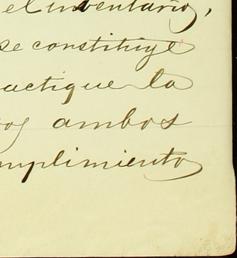 el inventario,
se constituye
actique la
os ambos
mplimiento